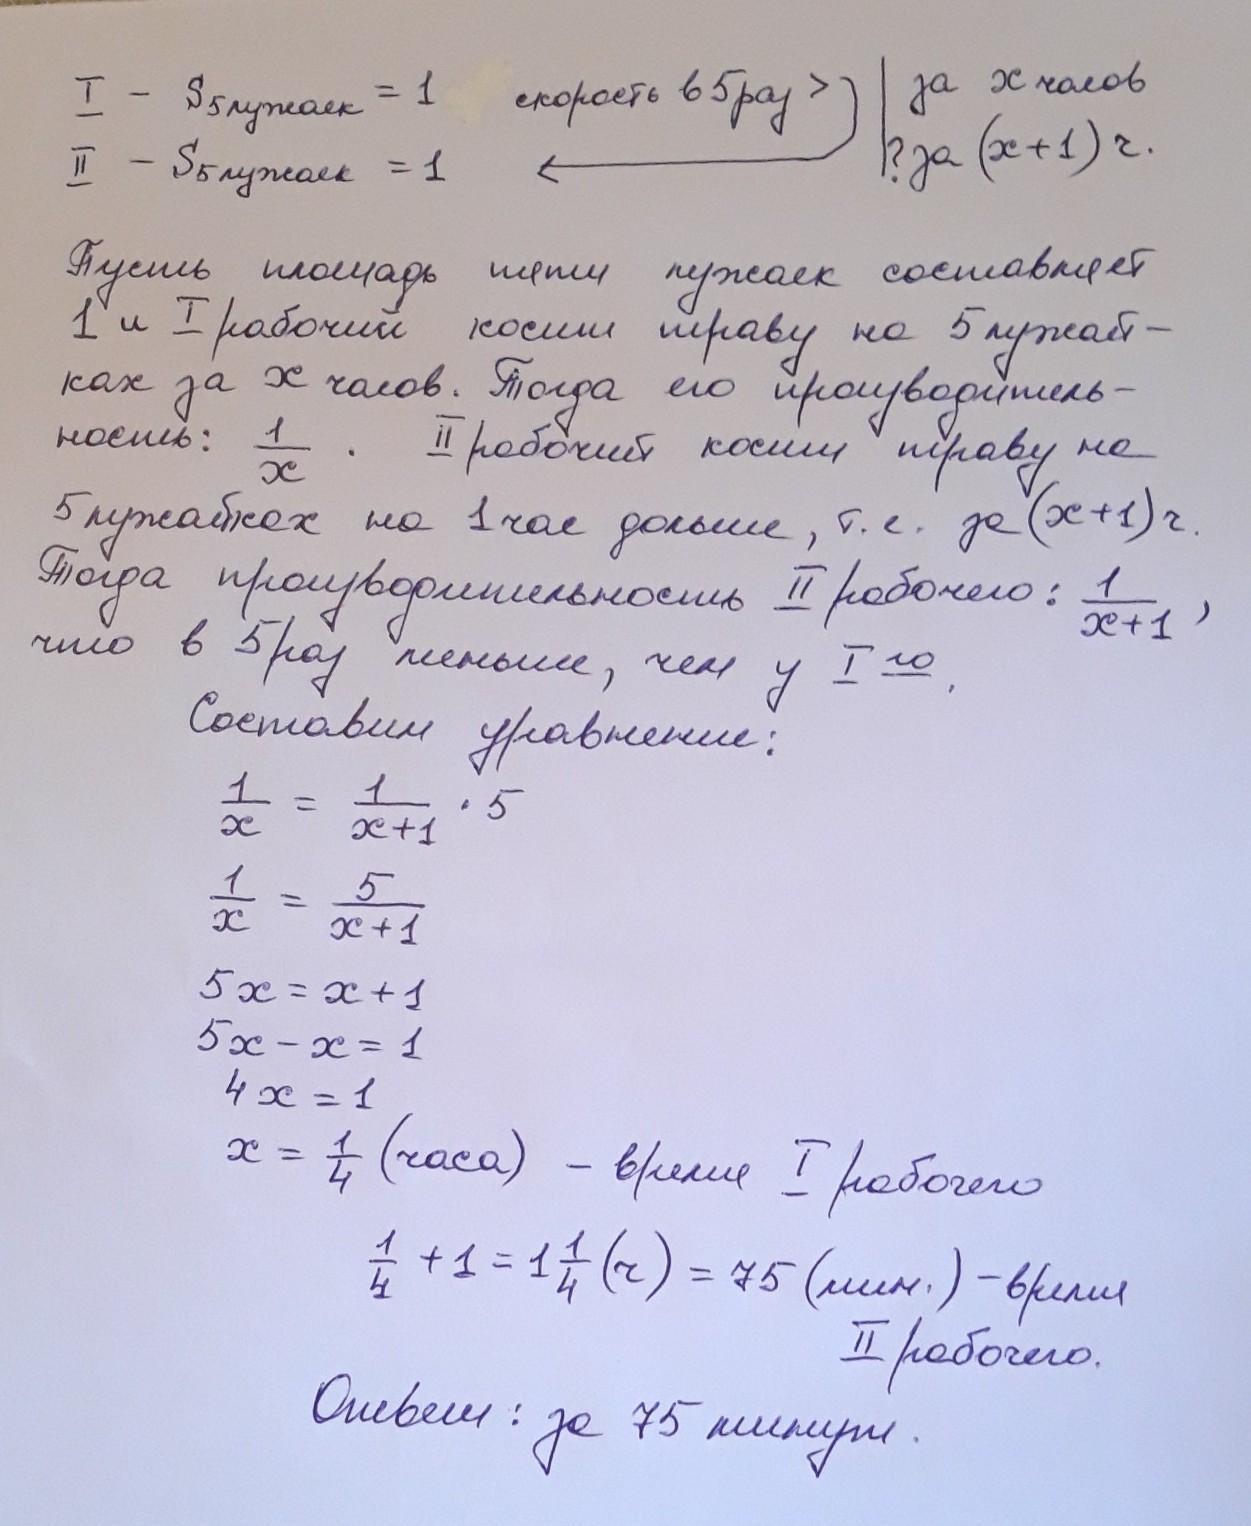 I - S 5 лужаек = 1 скорость в 5 раз > за x часов
II - S 5 лужаек = 1 ? за (x+1) ч.
Пусть площадь пяти лужаек составляет
1 и I рабочий косит траву на 5 лужай-
ках за x часов. Тогда его производитель-
ность: 1/x. II рабочий косит траву на
5 лужайках на 1 час дольше, т.е. за (x+1) ч.
Тогда производительность II рабочего: 1/(x+1),
что в 5 раз меньше, чем у I го.
Составим уравнение:
1/x = 1/(x+1) · 5
1/x = 5/(x+1)
5x = x+1
5x - x = 1
4x = 1
x = 1/4 (часа) - время I рабочего
1/4 + 1 = 1 1/4 (ч) = 75 (мин.) - время
II рабочего.
Ответ: за 75 минут.